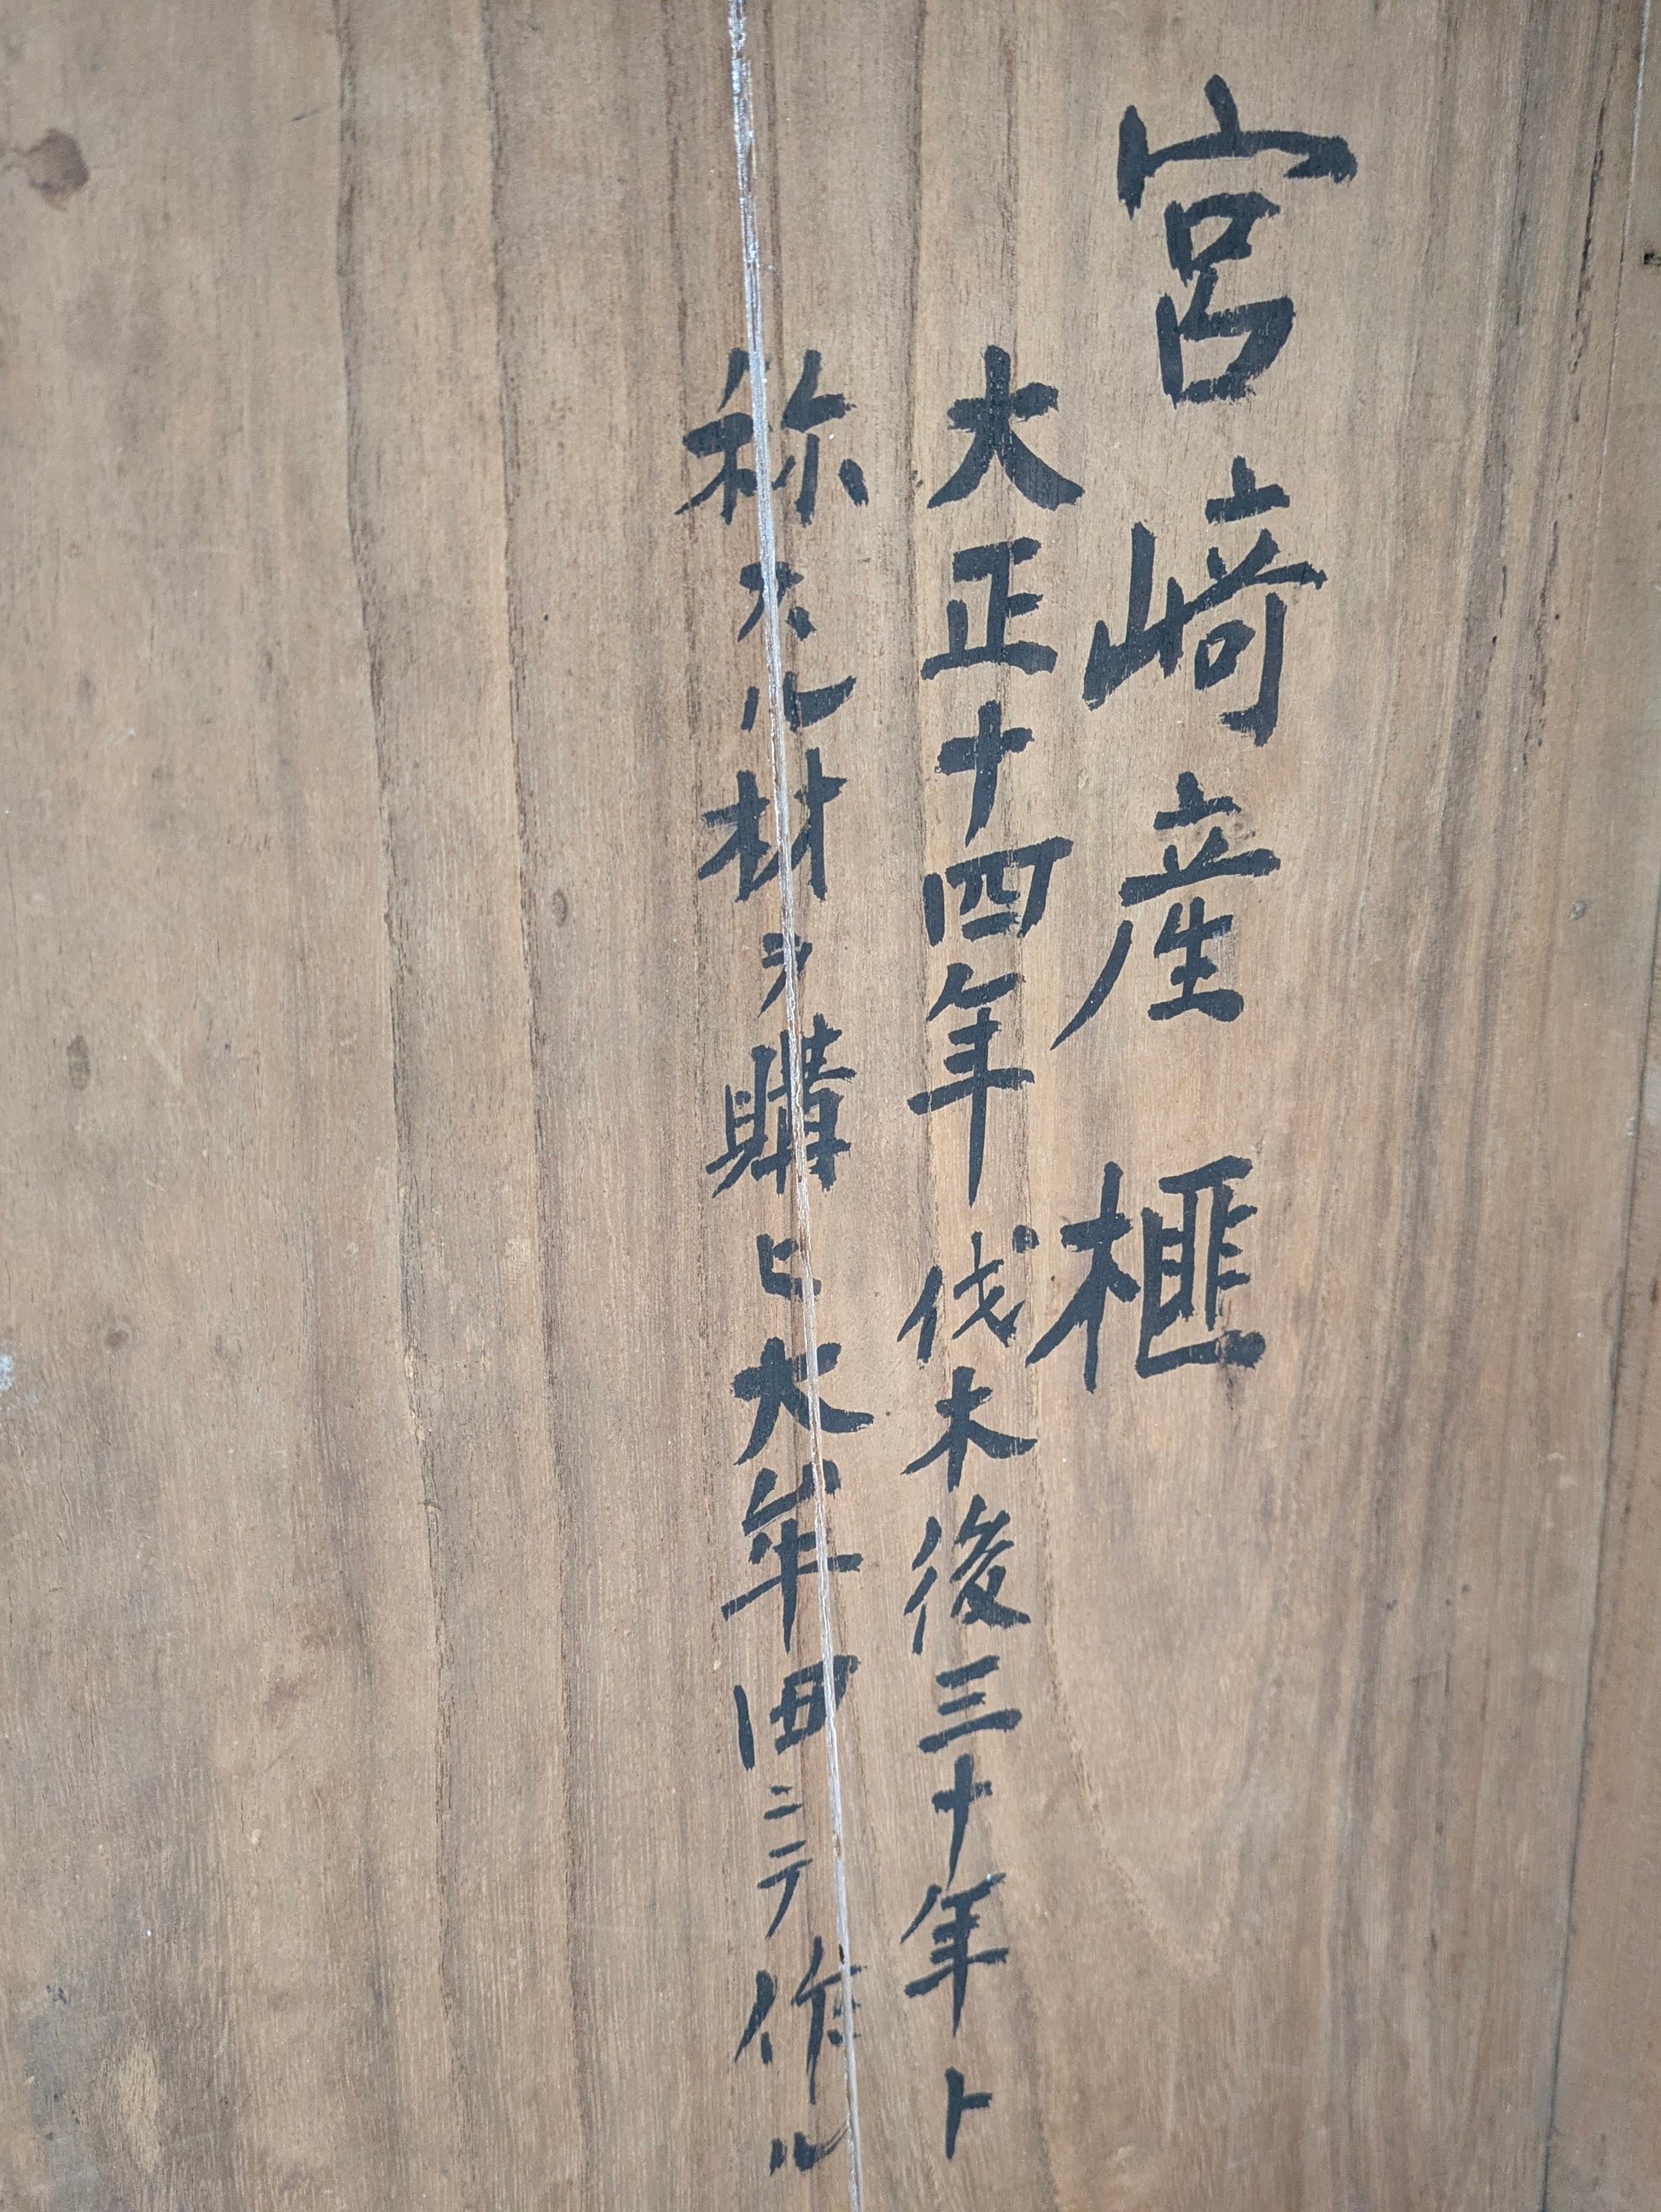 宮﨑産 榧
大正十四年伐木後三十年ト
称スル材ヲ購ヒ大牟田ニテ作ル